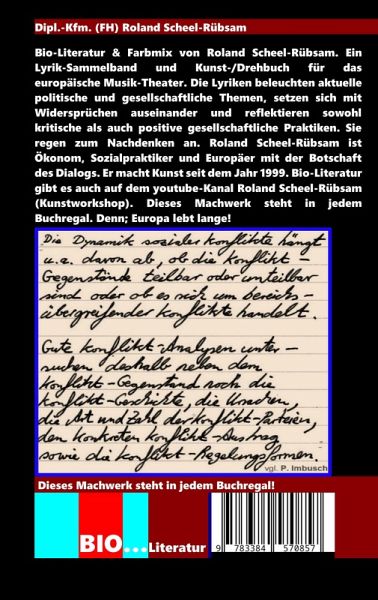 Dipl.-Kfm. (FH) Roland Scheel-Rübsam
Bio-Literatur & Farbmix von Roland Scheel-Rübsam. Ein
Lyrik-Sammelband und Kunst-/Drehbuch für das
europäische Musik-Theater. Die Lyriken beleuchten aktuelle
politische und gesellschaftliche Themen, setzen sich mit
Widersprüchen auseinander und reflektieren sowohl
kritische als auch positive gesellschaftliche Praktiken. Sie
regen zum Nachdenken an. Roland Scheel-Rübsam ist
Ökonom, Sozialpraktiker und Europäer mit der Botschaft
des Dialogs. Er macht Kunst seit dem Jahr 1999. Bio-Literatur
gibt es auch auf dem youtube-Kanal Roland Scheel-Rübsam
(Kunstworkshop). Dieses Machwerk steht in jedem
Buchregal. Denn; Europa lebt lange!
Die Dynamik sozialer Konflikte hängt
u.a. davon ab, ob die Konflikt-
Gegenstände teilbar oder unteilbar
sind oder ob es sich um bereichs-
übergreifender Konflikte handelt.
Gute Konflikt-Analysen unter-
suchen deshalb neben dem
Konflikt-Gegenstand noch die
Konflikt-Geschichte, die Ursachen,
die Art und Zahl der Konflikt-Parteien,
den konkreten Konflikt-Austrag
sowie die Konflikt-Regelungsformen.
vgl. P. Imbusch
Dieses Machwerk steht in jedem Buchregal!
BIO...Literatur
9 783384 570857